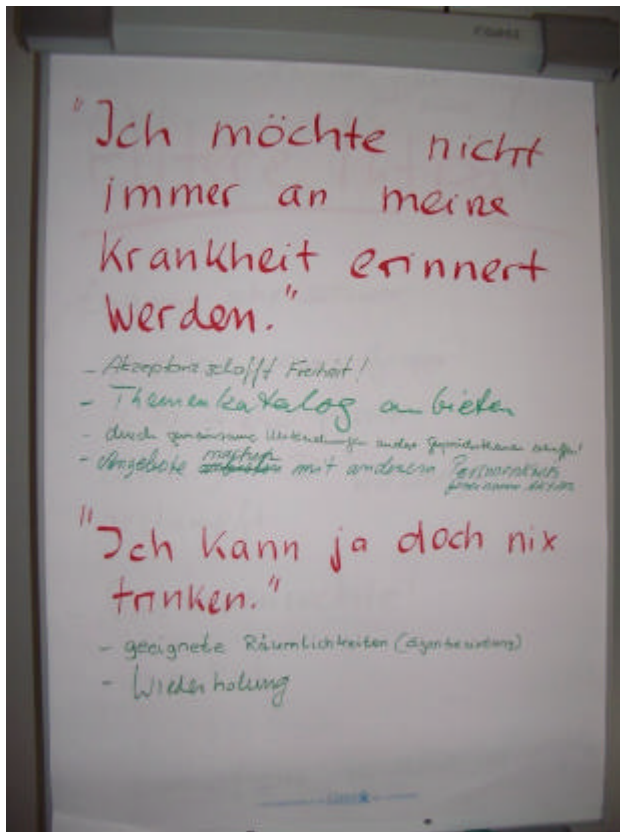 "Ich möchte nicht
immer an meine
Krankheit erinnert
werden."
- Akzeptanz schafft Freiheit!
- Themenkatalog anbieten
- durch gemeinsame Unternehmungen andere Gesprächsthemen schaffen!
- Angebote machen mit anderem Personenkreis
"Ich kann ja doch nix
trinken."
- geeignete Räumlichkeiten
- Wiederholung